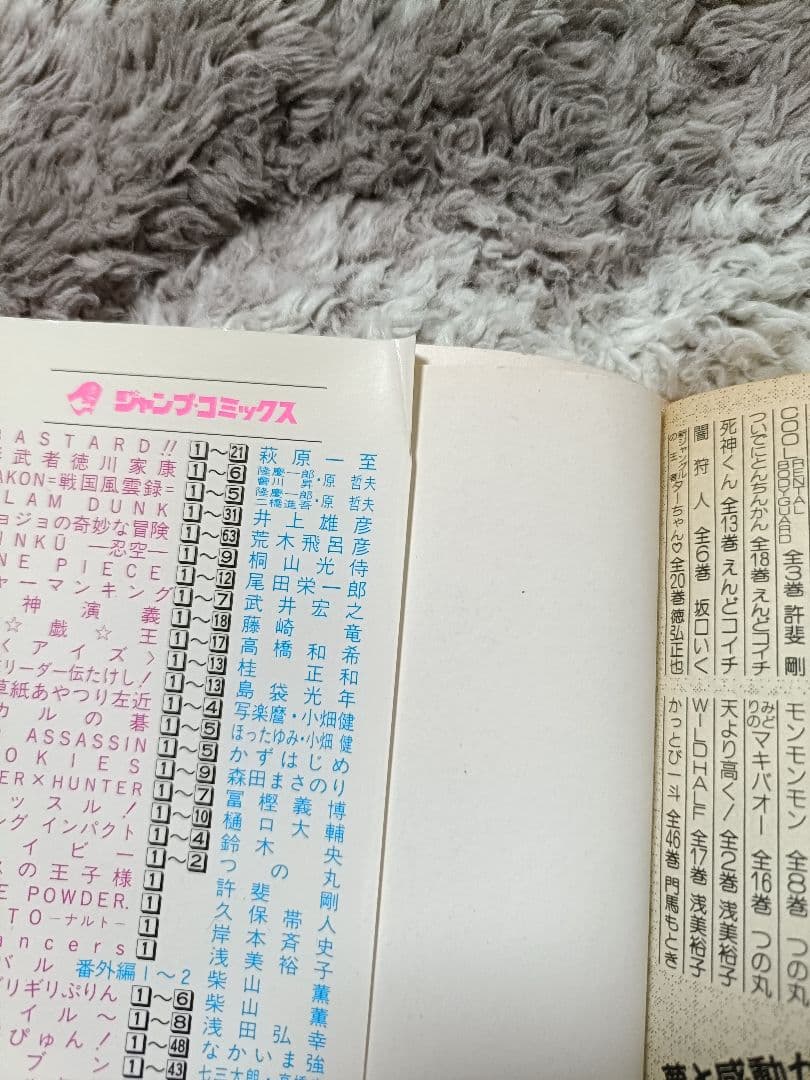 ジャンプ・コミックス
BASTARD!! 1〜21 萩原一至
武者徳川家康 1〜6 隆慶一郎・會川昇・原哲夫
AKON=戦国風雲録= 1〜5 隆慶一郎・二橋進吾・原哲夫
LAM DUNK 1〜31 井上雄彦
ョジョの奇妙な冒険 1〜63 荒木飛呂彦
INKŪ —忍空— 1〜9 桐山光侍
NE PIECE 1〜12 尾田栄一郎
ャーマンキング 1〜7 武井宏之
神演義 1〜18 藤崎竜
☆戯☆王 1〜17 高橋和希
くアイズ〉 1〜13 桂正和
リーダー伝たけし! 1〜13 島袋光年
草紙あやつり左近 1〜4 写楽麿・小畑健
カルの碁 1〜5 ほったゆみ・小畑健
ASSASSIN 1〜5 かずはじめ
OKIES 1〜9 森田まさのり
ER×HUNTER 1〜7 冨樫義博
ッスル! 1〜10 樋口大輔
ング インパクト 1〜4 鈴木央
イビー 1〜2 つの丸
スの王子様 1 許斐剛
E POWDER. 1 久保帯人
TO—ナルト— 1 岸本斉史
ancers 1 浅美裕子
バル 番外編1〜2 柴山薫
ギリギリぷりん 1〜6 柴山薫
イル〜 1〜8 浅田弘幸
ぴゅん! 1〜48 なかいま強
ブン 1〜43 七三太郎・高橋
COOL RENTAL BODYGUARD 全3巻 許斐剛
ついでにとんちんかん 全18巻 えんどコイチ
死神くん 全13巻 えんどコイチ
闇狩人 全6巻 坂口いく
新ジャングルの王者ターちゃん♡ 全20巻 徳弘正也
モンモンモン 全8巻 つの丸
みどりのマキバオー 全16巻 つの丸
天より高く! 全2巻 浅美裕子
WILD HALF 全17巻 浅美裕子
かっとび一斗 全46巻 門馬もとき
夢と感動